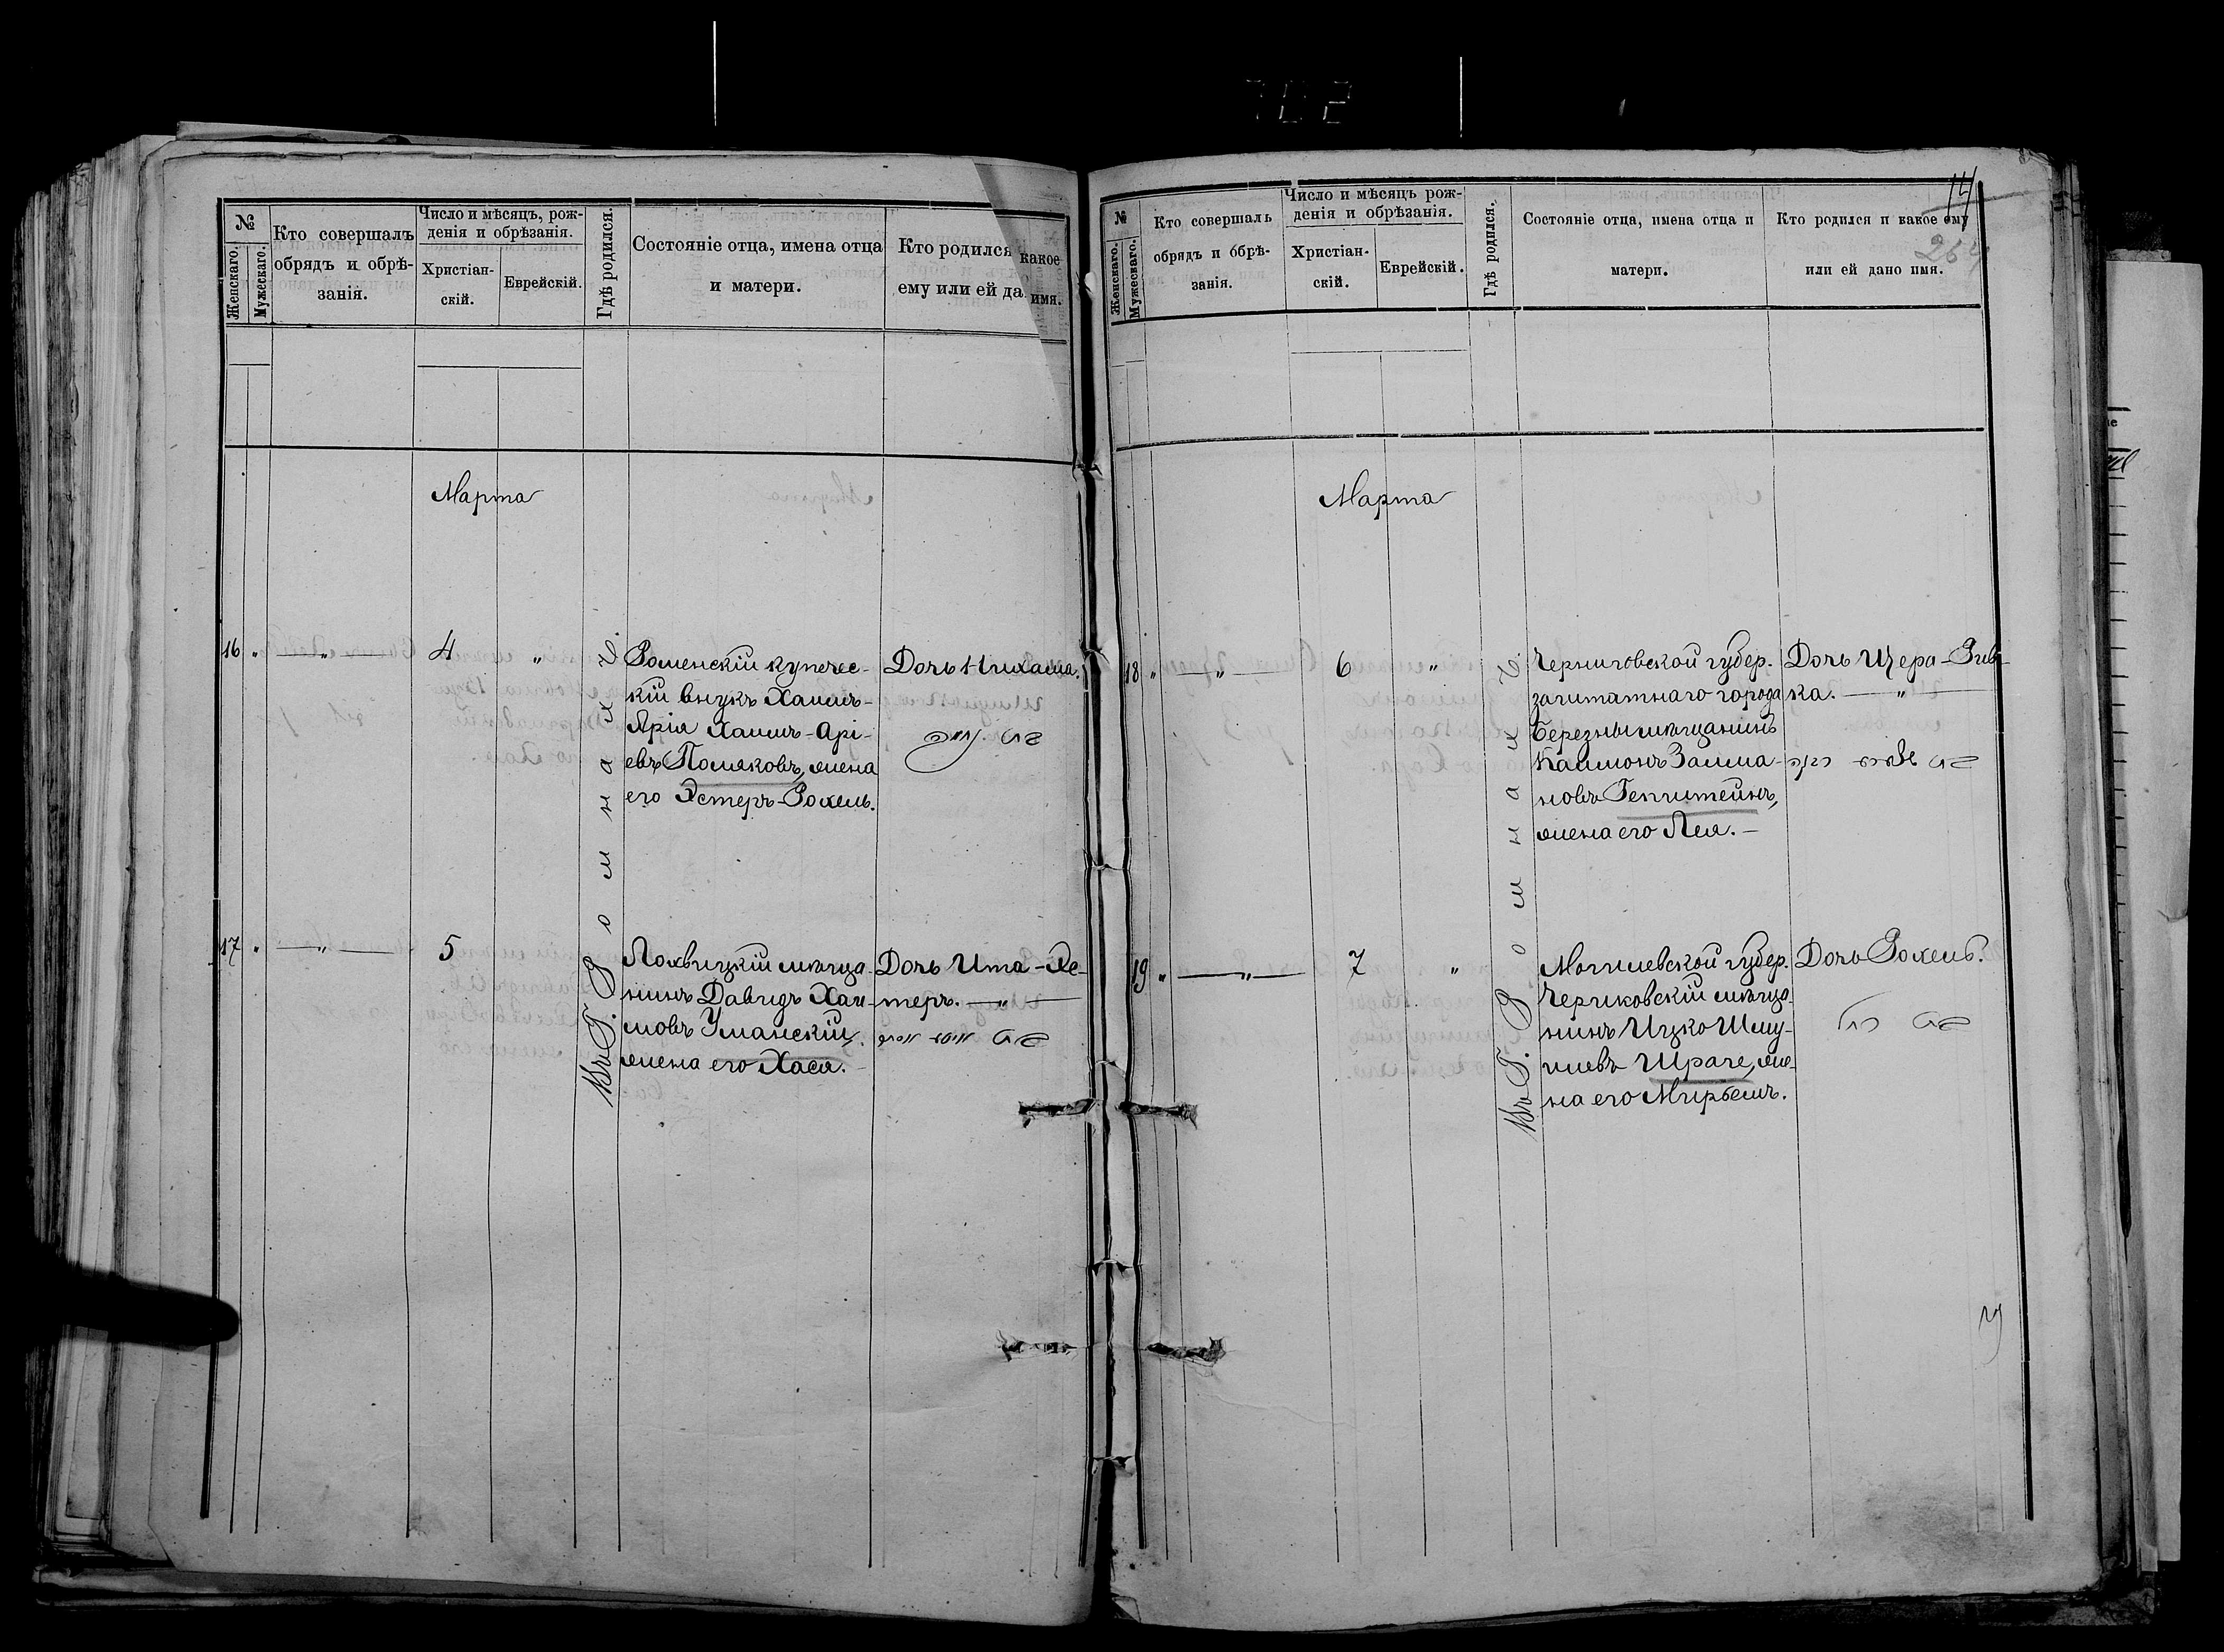 702
№
Женскаго.
Мужескаго.
Кто совершалъ
обрядъ и обрѣ-
занія.
Число и мѣсяцъ, рож-
денія и обрѣзанія.
Христіан-
скій.
Еврейскій.
Гдѣ родился.
Состояніе отца, имена отца
и матери.
Кто родился какое
ему или ей да имя.
Марта
16 " — " — 4 "
Роменскій купечес-
кій внукъ Хаимъ-
Арія Хаимъ-Арі-
евъ Поляковъ, жена
его Эстеръ-Рохель.
Дочь Нихама.
בת
17 " — " — 5
Лохвицкій мѣща-
нинъ Давидъ Хаи-
мовъ Уманскій,
жена его Хася.
Дочь Ита-Эс-
теръ. — " —
בת
Въ Г. Ромнахъ.
14
264
№
Женскаго.
Мужескаго.
Кто совершалъ
обрядъ и обрѣ-
занія.
Число и мѣсяцъ рож-
денія и обрѣзанія.
Христіан-
скій.
Еврейскій.
Гдѣ родился.
Состояніе отца, имена отца и
матери.
Кто родился и какое ему
или ей дано имя.
Марта
18 " — " — 6 "
Черниговской губер.
заштатнаго города
Березны мѣщанинъ
Калмонъ Залма-
новъ Гепштейнъ,
жена его Лея. —
Дочь Цера-Рив-
ка. — " —
בת רבקה
19 " — " — 7 "
Могилевской губер.
Чериковскій мѣща-
нинъ Ицко Шму-
илевъ Шраге, же-
на его Мирьемъ.
Дочь Рохель.
בת רחל
Въ Г. Ромнахъ.